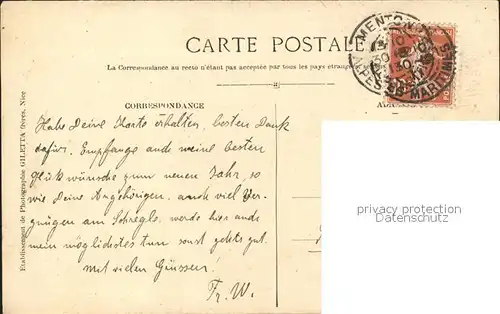 CARTE POSTALE
La Correspondance au recto n'étant pas acceptée par tous les pays étrangers
MENTON
ALPES MARITIMES
CORRESPONDANCE
Habe Deine Karte erhalten, besten Dank
dafür. Empfange auch meine besten
Glückwünsche zum neuen Jahr, so
wie Deine Angehörigen, auch viel Ver-
gnügen am werde hier auch
mein möglichstes tun sonst gehts gut.
Mit vielen Grüssen!
Fr. W.
Etablissement de Photographie GILETTA frères, Nice
privacy protection
Datenschutz